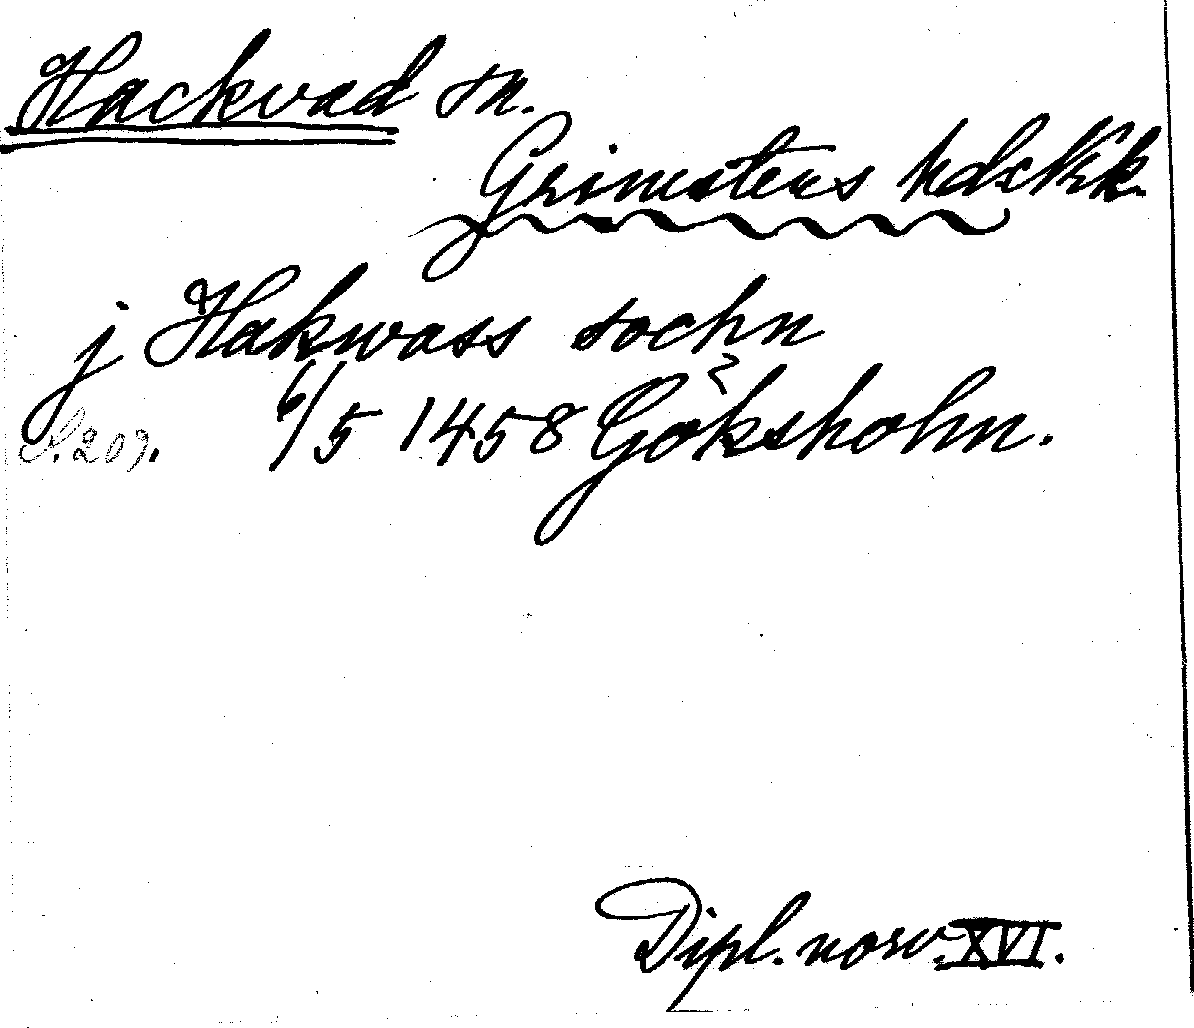 Hackvad sn.
Grimstens hd
j Hakwass sochn
S. 209. 6/5 1458 Göksholm.
Dipl. norv. XVI.